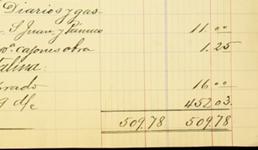 Diarios y gas
S. Juan y Panuco 11.00
cajones obra 1.25
alina:
rado 16.00
9 d/c 452.03
509.78 509.78